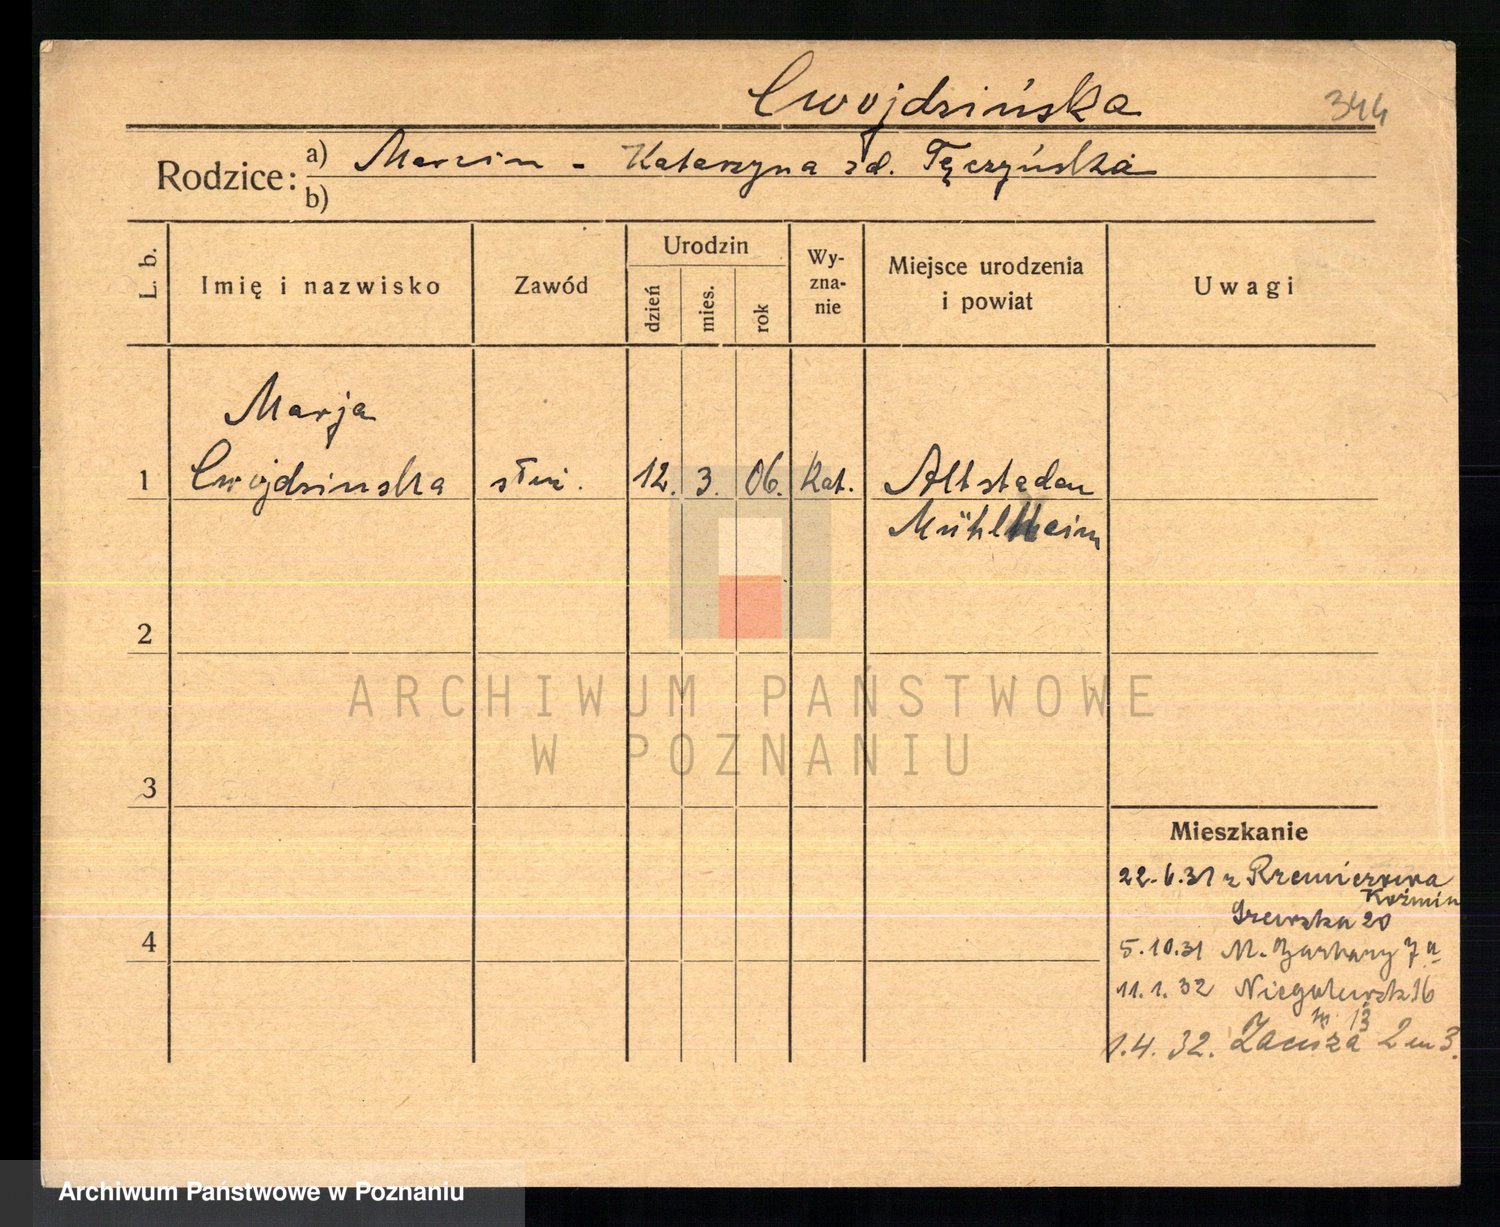 Cwojdzińska 344
Rodzice: a) Marcin - Katarzyna zd. Tęczyńska
b)
L. b.
Imię i nazwisko
Zawód
Urodzin
dzień
mies.
rok
Wy-
zna-
nie
Miejsce urodzenia
i powiat
Uwagi
Marja
1 Cwojdzinska służ. 12. 3. 06. Kat. Altstaden
Mühlheim
2
3
4
ARCHIWUM PAŃSTWOWE
W POZNANIU
Mieszkanie
22.6.31 z
Koźmin
20
5.10.31 M. Garbary 7a
11.1.32 Niegolewsk 16
m. 13
1.4.32. Zacisza 2 m 3.
Archiwum Państwowe w Poznaniu